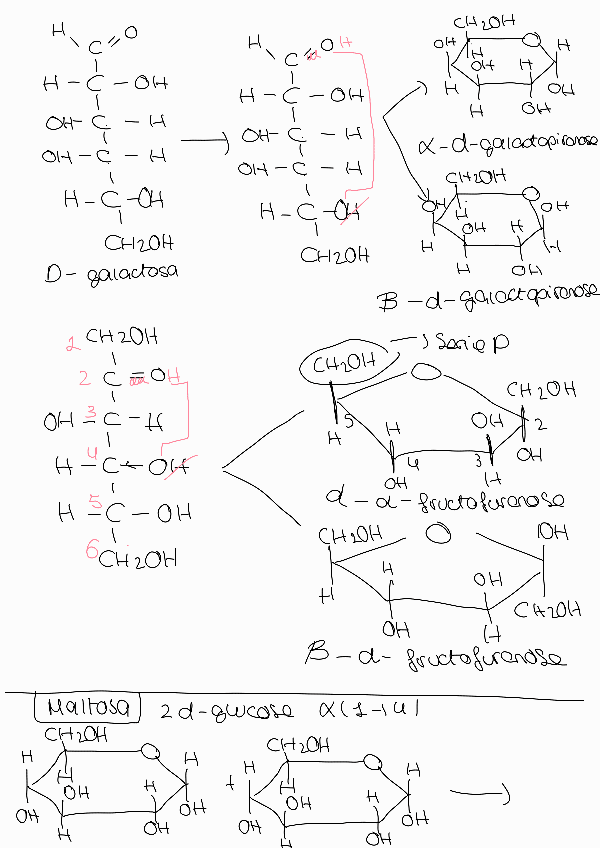 H
C
O
H - C - OH
OH - C - H
OH - C - H
H - C - OH
CH2OH
D - galactosa
H
C
O H
H - C - OH
OH - C - H
OH - C - H
H - C - OH
CH2OH
CH2OH
OH
O
H
H
OH
H
H
OH
H
OH
α - d - galactopiranose
CH2OH
OH
O
OH
H
OH
H
H
H
H
OH
B - d - galactopiranose
1 CH2OH
2 C = OH
OH - 3 C - H
4
H - C - OH
5
H - C - OH
6 CH2OH
CH2OH
Serie D
O
CH2OH
5
H
OH
2
H
OH
4
3
OH
H
α - d - fructofuranose
CH2OH
O
OH
H
OH
H
CH2OH
OH
H
B - d - fructofuranose
Maltosa
2 d-glucose α(1-4)
CH2OH
H
O
H
H
OH
H
OH
OH
H
OH
+
CH2OH
H
O
H
H
OH
H
OH
OH
H
OH